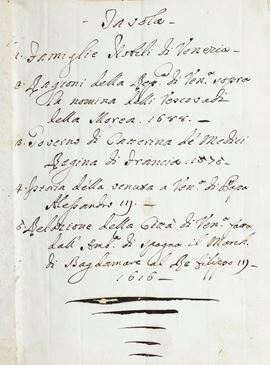 - Tavola -
1. Famiglie Nobili di Venezia -
2. Ragioni della Rep.ª di Ven.ª sopra
la nomina delli Vescovadi
della Morea. 1688. -
3. Governo di Catterina de' Medici
Regina di Francia. 1575 -
4. Istoria della venuta a Ven.ª di Papa
Alessandro III. -
5. Relazione della Città di Ven.ª fatta
dall' Amb.r di Spagna il March.
di Bagdamare al Re Filippo III -
- 1616 -